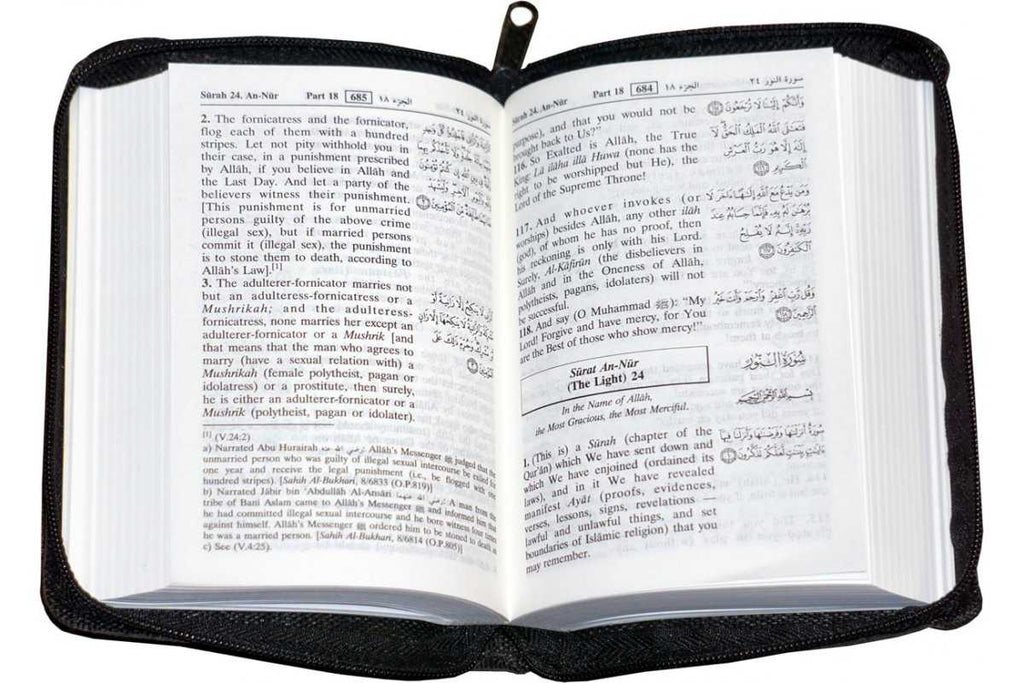 Sūrah 24. An-Nūr Part 18 684 الجزء ١٨ سورة النور ٢٤
purpose), and that you would not be
brought back to Us?"
116. So Exalted is Allâh, the True
King: Lâ ilâha illâ Huwa (none has the
right to be worshipped but He), the
Lord of the Supreme Throne!
117. And whoever invokes (or
worships) besides Allâh, any other ilâh
(god), of whom he has no proof, then
his reckoning is only with his Lord.
Surely, Al-Kâfirûn (the disbelievers in
Allâh and in the Oneness of Allâh,
polytheists, pagans, idolaters) will not
be successful.
118. And say (O Muhammad ﷺ): "My
Lord! Forgive and have mercy, for You
are the Best of those who show mercy!"
وَأَنَّكُمْ إِلَيْنَا لَا تُرْجَعُونَ
فَتَعَٰلَى ٱللَّهُ ٱلْمَلِكُ ٱلْحَقُّ لَآ
إِلَٰهَ إِلَّا هُوَ رَبُّ ٱلْعَرْشِ
ٱلْكَرِيمِ
وَمَن يَدْعُ مَعَ ٱللَّهِ إِلَٰهًا ءَاخَرَ لَا
بُرْهَٰنَ لَهُۥ بِهِۦ فَإِنَّمَا حِسَابُهُۥ عِندَ
رَبِّهِۦٓ إِنَّهُۥ لَا يُفْلِحُ
ٱلْكَٰفِرُونَ
وَقُل رَّبِّ ٱغْفِرْ وَٱرْحَمْ وَأَنتَ خَيْرُ
ٱلرَّٰحِمِينَ
Sûrat An-Nûr
(The Light) 24
سُورَةُ النُّورِ
In the Name of Allâh,
the Most Gracious, the Most Merciful.
بِسْمِ ٱللَّهِ ٱلرَّحْمَٰنِ ٱلرَّحِيمِ
1. (This is) a Sûrah (chapter of the
Qur'ân) which We have sent down and
which We have enjoined (ordained its
laws), and in it We have revealed
manifest Ayât (proofs, evidences,
verses, lessons, signs, revelations —
lawful and unlawful things, and set
boundaries of Islâmic religion) that you
may remember.
سُورَةٌ أَنزَلْنَٰهَا وَفَرَضْنَٰهَا وَأَنزَلْنَا فِيهَآ
ءَايَٰتٍۭ بَيِّنَٰتٍ لَّعَلَّكُمْ تَذَكَّرُونَ
Sūrah 24. An-Nūr Part 18 685 الجزء ١٨
2. The fornicatress and the fornicator,
flog each of them with a hundred
stripes. Let not pity withhold you in
their case, in a punishment prescribed
by Allâh, if you believe in Allâh and
the Last Day. And let a party of the
believers witness their punishment.
[This punishment is for unmarried
persons guilty of the above crime
(illegal sex), but if married persons
commit it (illegal sex), the punishment
is to stone them to death, according to
Allâh's Law].[1]
3. The adulterer-fornicator marries not
but an adulteress-fornicatress or a
Mushrikah; and the adulteress-
fornicatress, none marries her except an
adulterer-fornicator or a Mushrik [and
that means that the man who agrees to
marry (have a sexual relation with) a
Mushrikah (female polytheist, pagan or
idolatress) or a prostitute, then surely,
he is either an adulterer-fornicator or a
Mushrik (polytheist, pagan or idolater).
[1] (V.24:2)
a) Narrated Abu Hurairah رضي الله عنه Allâh's Messenger ﷺ judged that the
unmarried person who was guilty of illegal sexual intercourse be exiled for
one year and receive the legal punishment (i.e., be flogged with one
hundred stripes). [Sahih Al-Bukhari, 8/6833 (O.P.819)]
b) Narrated Jâbir bin 'Abdullâh Al-Ansâri رضي الله عنهما A man from the
tribe of Bani Aslam came to Allâh's Messenger ﷺ and informed him that
he had committed illegal sexual intercourse and he bore witness four times
against himself. Allâh's Messenger ﷺ ordered him to be stoned to death as
he was a married person. [Sahih Al-Bukhari, 8/6814 (O.P.805)]
c) See (V.4:25).